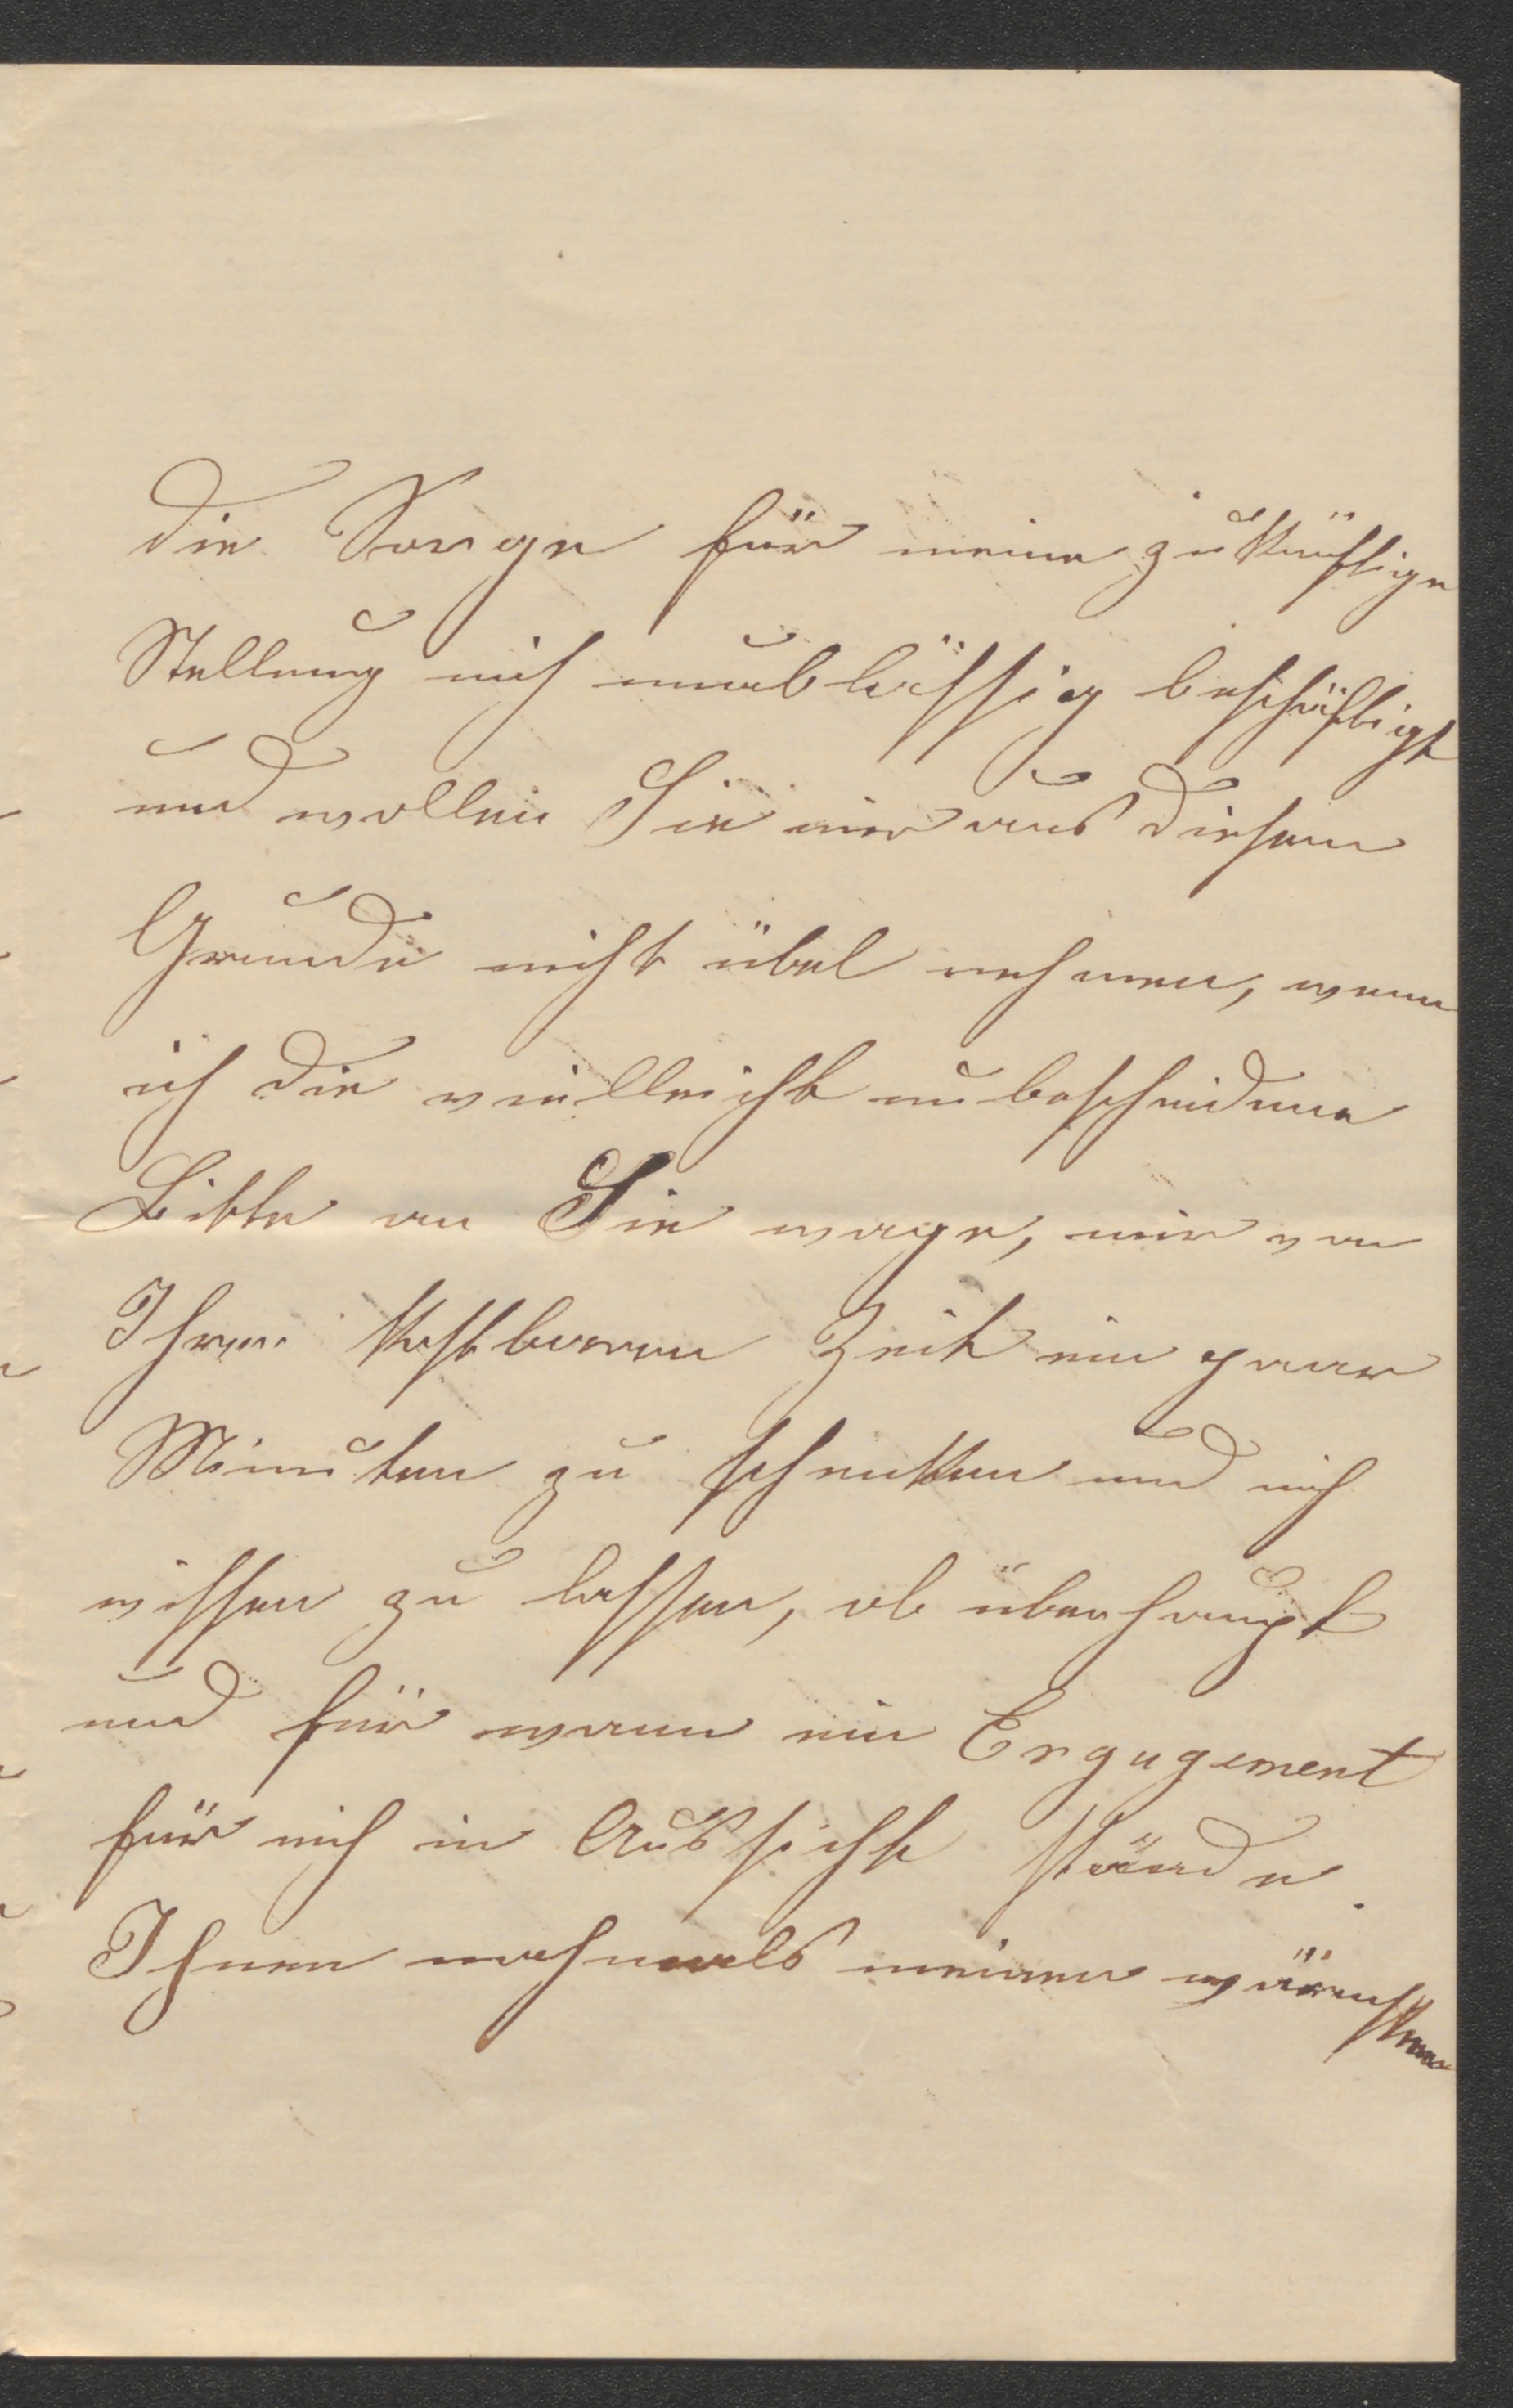 die Sorge für meine zukünftige
Stellung mich unablässig beschäftigt
und wollen Sie mir aus diesem
Grunde nicht übel nehmen, wenn
ich die vielleicht unbescheidene
Bitte an Sie wage, mir von
Ihrer kostbaren Zeit ein paar
Minuten zu schenken und mich
wissen zu lassen, ob überhaupt
und für wann ein Engagement
für mich in Aussicht stände.
Ihnen nochmals meinen wärmsten